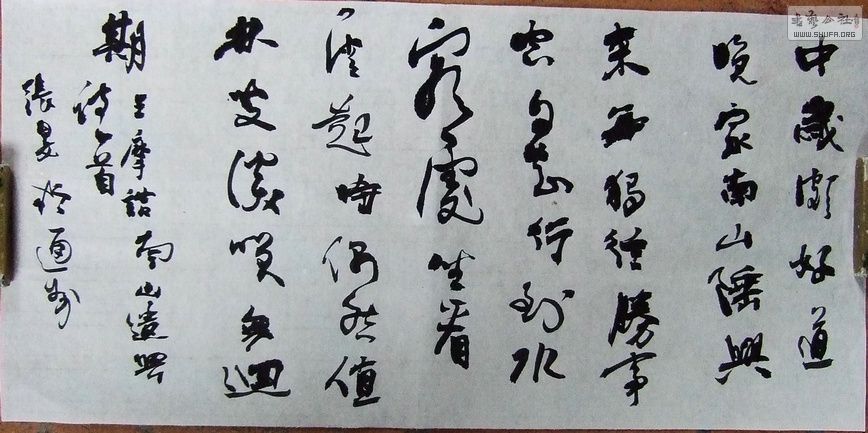 中歲頗好道
晚家南山陲興
來每獨往勝事
空自知行到水
窮處坐看
雲起時偶然值
林叟談笑無迴
期
王摩詰南山遣興
詩一首
張旻於通州
书艺公社
WWW.SHUFA.ORG